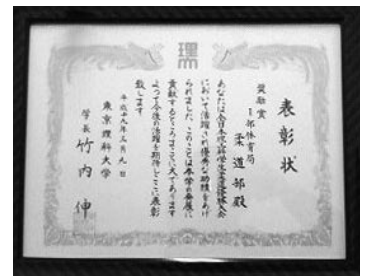 理
表彰状
奨励賞
Ⅰ部体育局
柔道部殿
あなたは全日本理工科学生柔道優勝大会
において活躍され優秀な功績をあげ
られました このことは本学の発展に
貢献するところまことに大であります
よって今後の活躍を期待しここに表彰
致します
平成十九年三月九日
東京理科大学
学長 竹内 伸